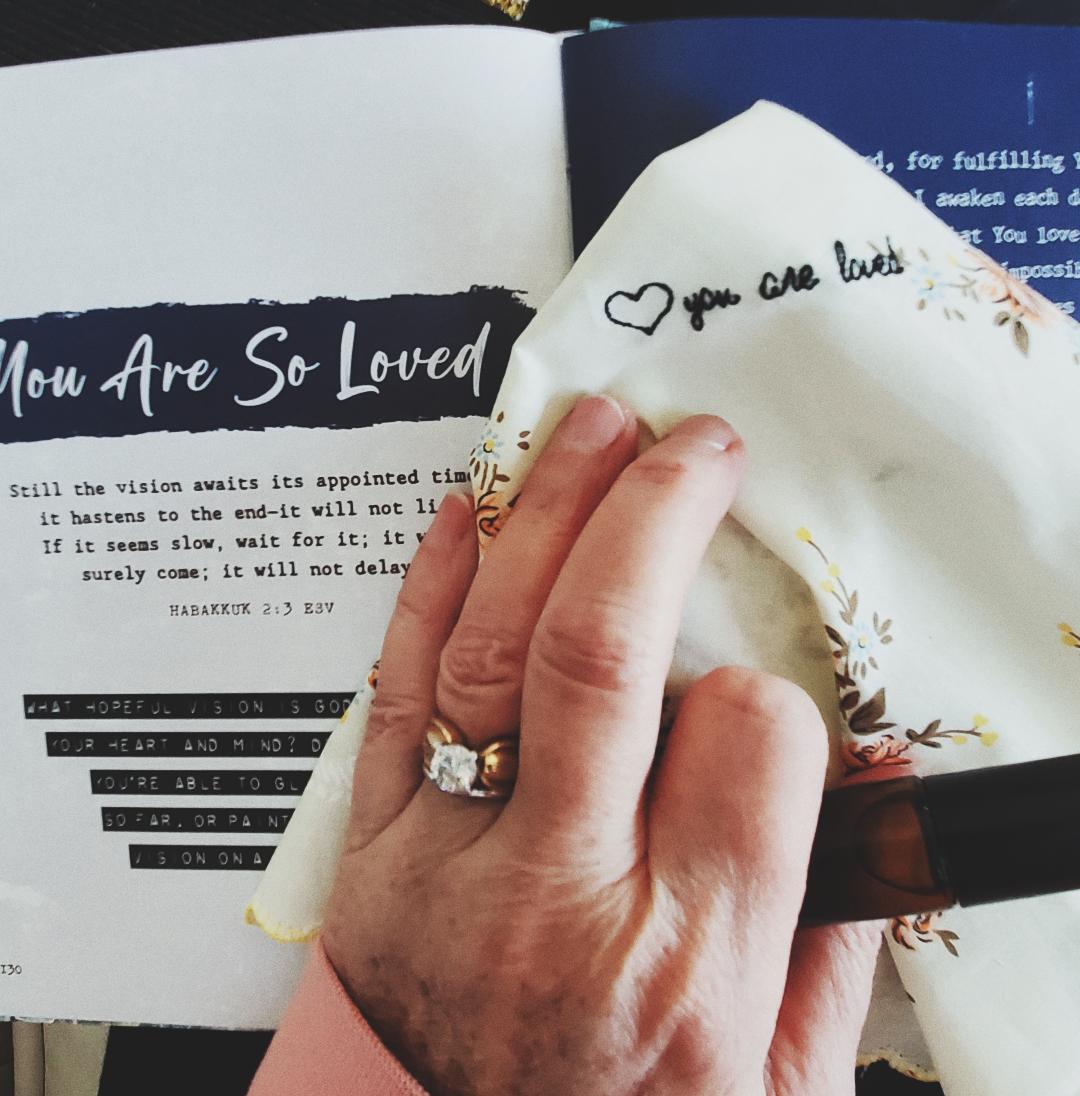 You Are So Loved
Still the vision awaits its appointed
it hastens to the end—it will not
If it seems slow, wait for it; it
surely come; it will not delay
HABAKKUK 2:3 ESV
WHAT HOPEFUL VISION IS GOD
YOUR HEART AND MIND?
YOU'RE ABLE TO
SO FAR, OR PAINT
VISION ON A
130
you are loved
for fulfilling
I awaken each
You love